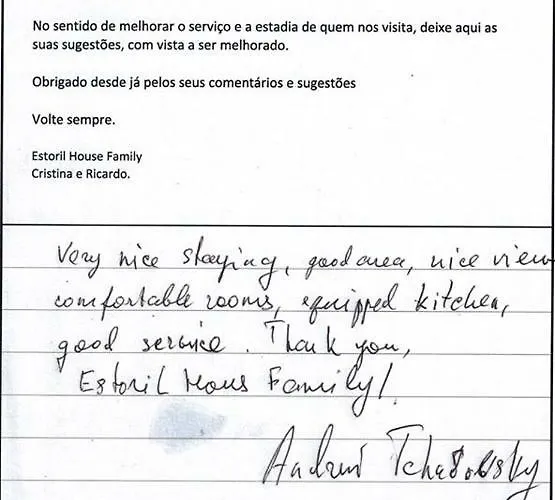 No sentido de melhorar o serviço e a estadia de quem nos visita, deixe aqui as
suas sugestões, com vista a ser melhorado.
Obrigado desde já pelos seus comentários e sugestões
Volte sempre.
Estoril House Family
Cristina e Ricardo.
Very nice staying, good area, nice view
comfortable rooms, equipped kitchen,
good service. Thank you,
Estoril Hous Family!